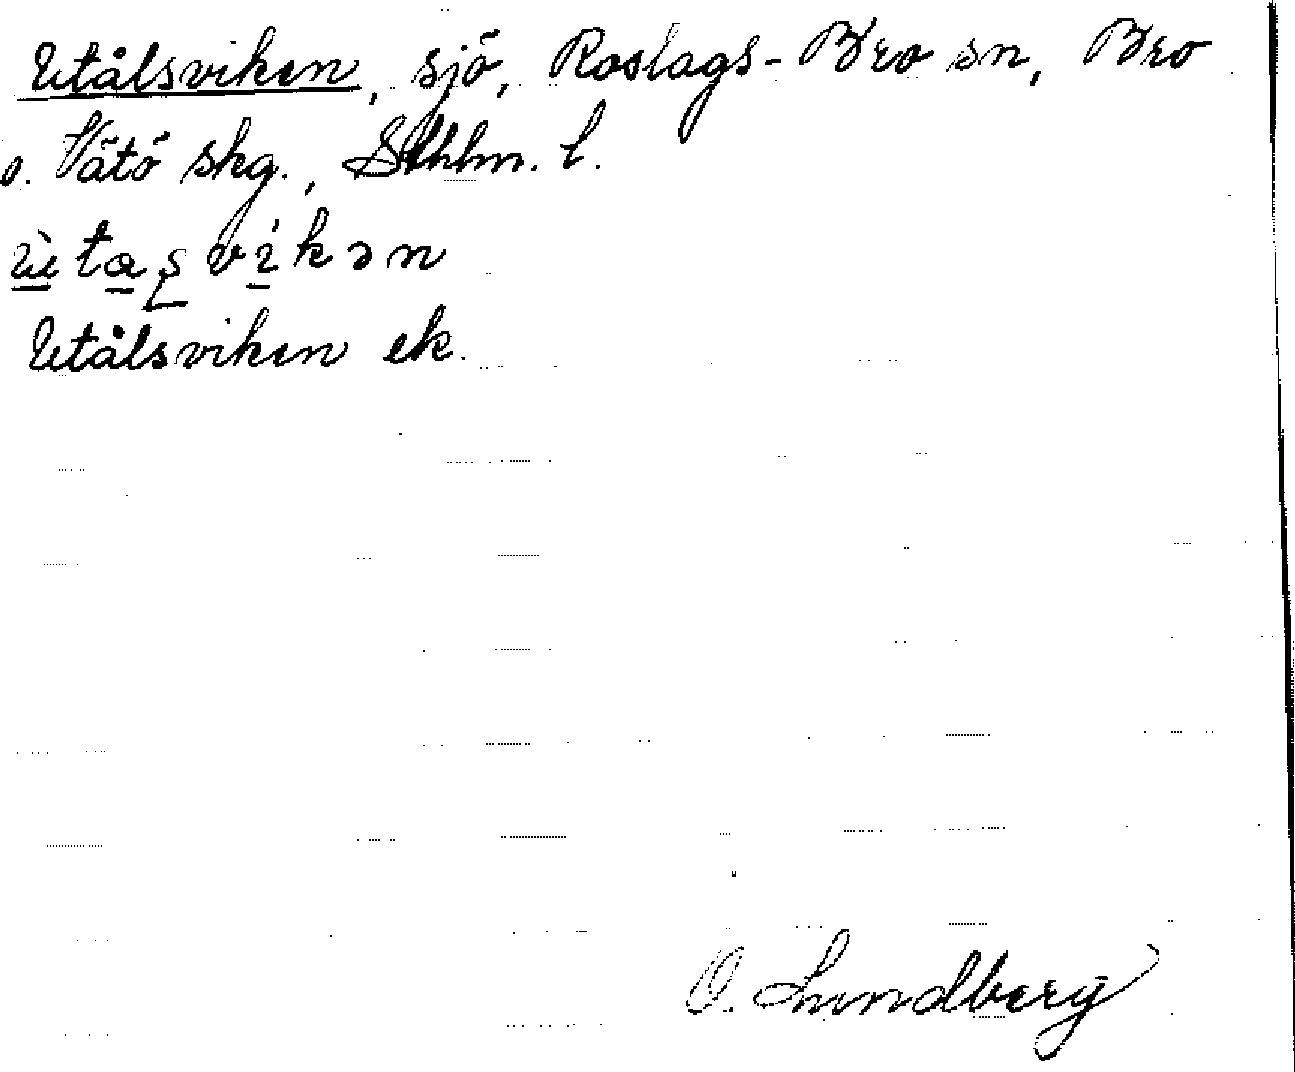 Utålsviken, sjö, Roslags-Bro sn, Bro
o. Vätö skg., Sthlm. l.
ùtaşvíkən
Utålsviken ek.
O. Lundberg